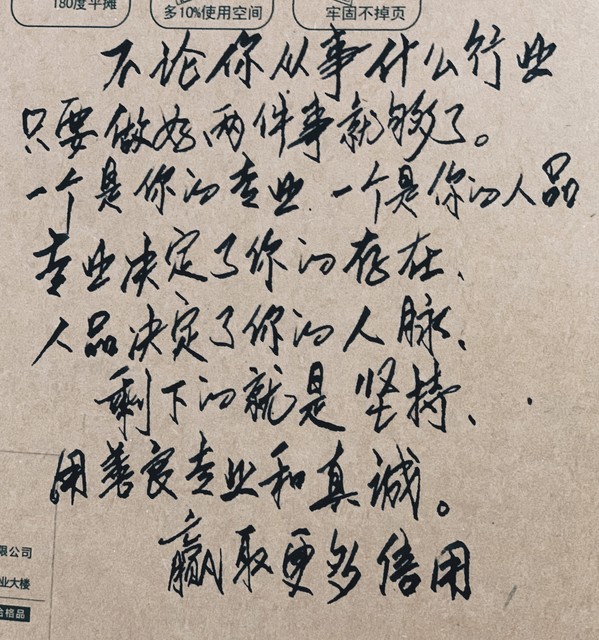 180度平摊
多10%使用空间
牢固不掉页
不论你从事什么行业
只要做好两件事就够了。
一个是你的专业、一个是你的人品
专业决定了你的存在、
人品决定了你的人脉、
剩下的就是坚持、
用善良专业和真诚。
赢取更多信用
限公司
业大楼
合格品